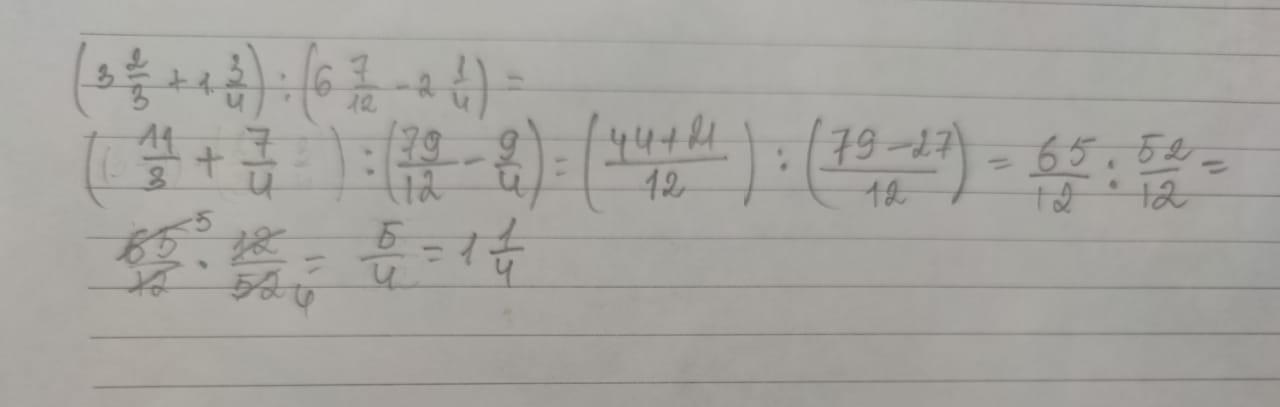 (3 2/3 + 1 3/4) : (6 7/12 - 2 1/4) =
(11/3 + 7/4) : (79/12 - 9/4) = (44+21/12) : (79-27/12) = 65/12 : 52/12 =
65/12 5 · 12/52 4 = 5/4 = 1 1/4